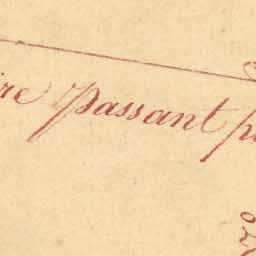 ire passant p